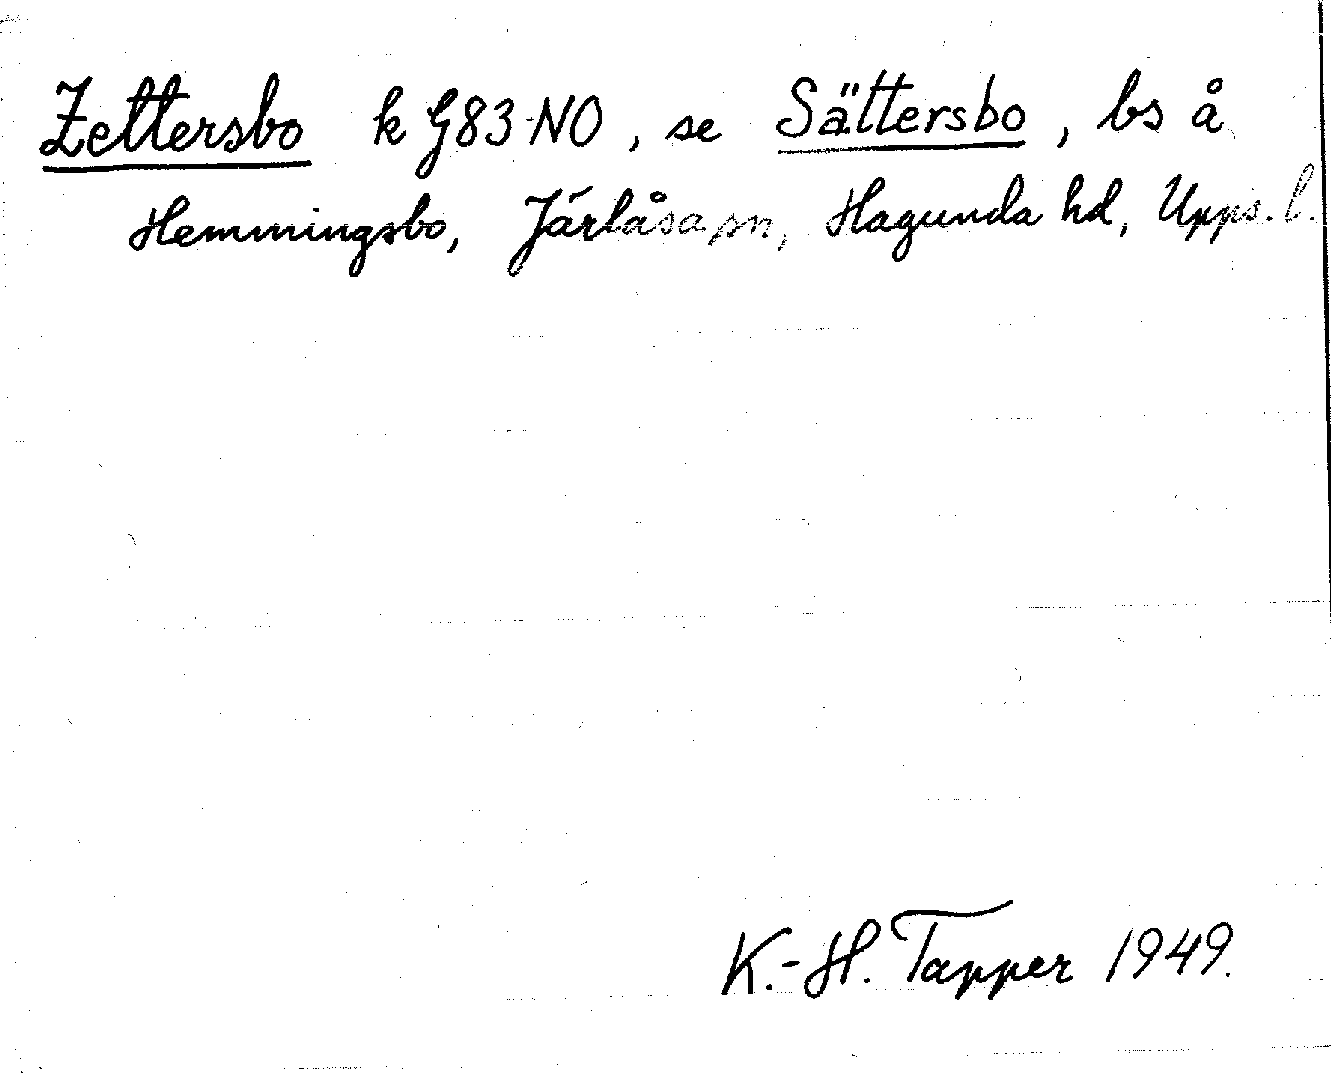 Zettersbo k G83 NO, se Sättersbo, bs å
Hemmingsbo, Järlåsa sn, Hagunda hd, Upps. l.
K.-H. Tapper 1949.